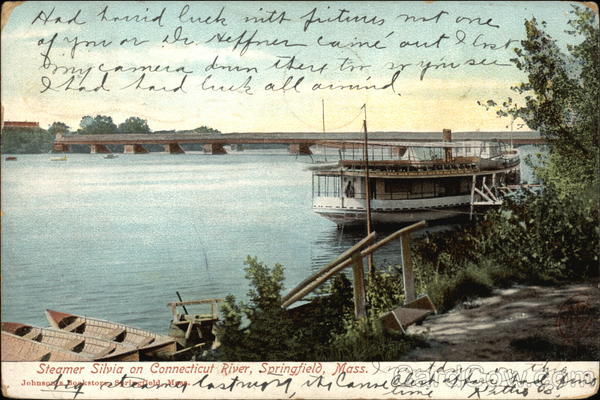 Had hard luck with pictures not one
of you or Dr. Heffner came out I lost
my camera down there too so you see
I had hard luck all around.
Steamer Silvia on Connecticut River, Springfield, Mass.
Johnson's Bookstore, Springfield, Mass.
big last
time
CardCow.com